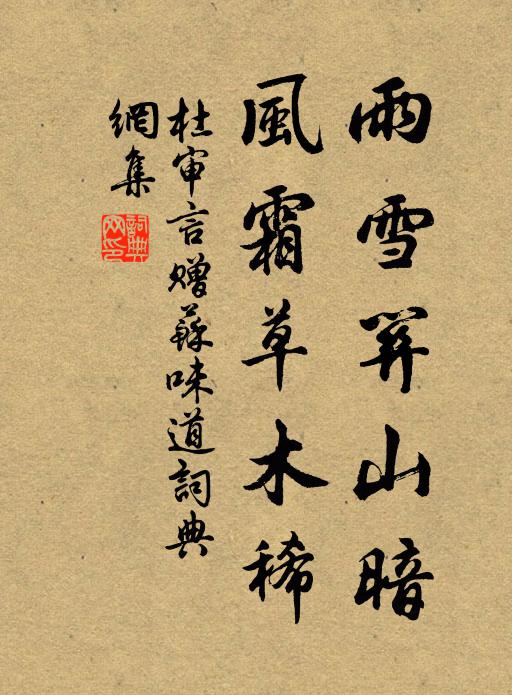 雨雪關山暗
風霜草木稀
杜审言贈蘇味道詞典
網集
詞典网印